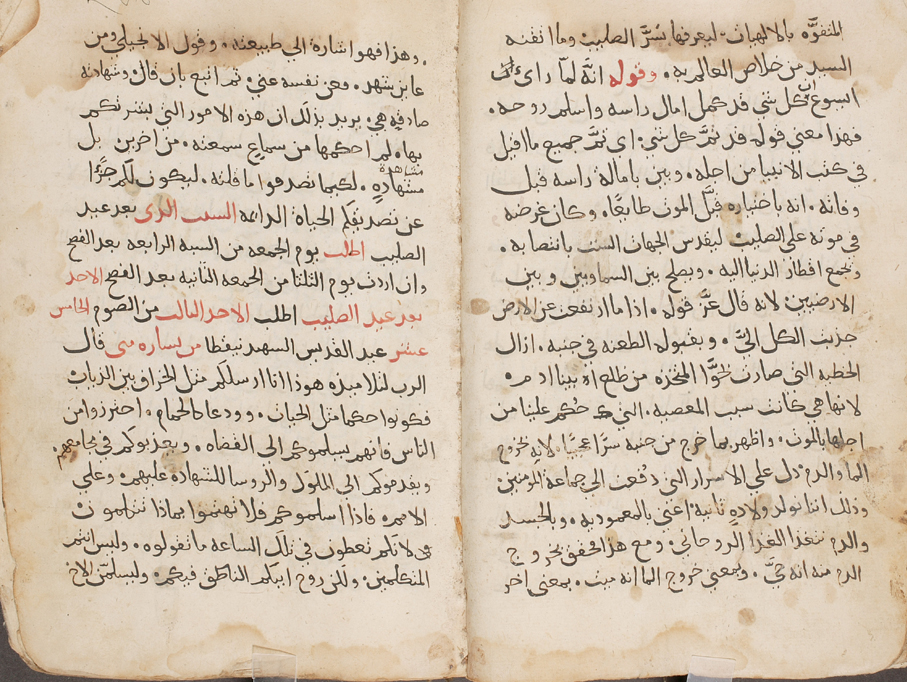 المتفوّه بالالهيات ليعرفنا بسرّ الصليب وما اتفنه
السيد من خلاص العالم به . وقوله انه لمّا راى
ايسوع ان كل شي قد كمل امال راسه واسلم روحه .
فهذا معنى قوله قد تمّ كل شي . اى تمّ جميع ما قيل
فى كتب الانبيا من اجله . وبين بامالة راسه قبل
وفاته . انه باختياره قبل الموت طايعًا . وكان غرضه
فى موته على الصليب ليقدس الجهات الست بانتصابه .
ويجمع اقطار الدنيا اليه . ويصلح بين السماويين وبين
الارضيين . لانه قال عزّ قوله . اذا ما ارتفعت عن الارض
جذبت الكل اليّ . وبقبوله الطعنه في جنبه . ازال
الخطيه التي صارت لحوّا المتخذه من ضلع ابينا ادم .
لانها هي كانت سبب المعصيه . التي حُكم علينا من
اجلها بالموت . واظهر بما خرج من جنبه سرّا عجيبًا . لانه بخروج
الما والدم دل على الاسرار التي دُفعت الى جماعة المومنين
وذلك اننا نولد ولاده ثانية . اعنى بالمعموديه . وبالجسد
والدم نتغذا الغذا الروحاني . ومع هذا فحقق بخروج
الدم منه انه حيّ . وبمعنى خروج الما انه ميت . بمعنى اخر
وهذا فهو اشارة الى طبيعته . وقول الانجيلي ومن
عاين شهد . وعن نفسه عنى . ثم اتبع بان قال وشهادته
صادقه هي . يريد بذلك ان هذه الامور التي بشرتكم
بها . لم احكها من سماع سمعته . من اخرين بل
مشاهدة
شهاده . لكيما تصدقوا ما قلته . ليكون لكم جزًا
عن تصديقكم الحياة الدايمه السبت الذى بعد عيد
الصليب اطلب يوم الجمعه من السبة الرابعه بعد الفصح
وان اردت يوم الثلثا من الجمعه الثانيه بعد الفصح الاحد
بعد عيد الصليب اطلب الاحد الثالث من الصوم الخامس
عشر عيد القديس الشهيد نيقيطا من بشاره متى قال
الرب لتلاميذه هوذا انا ارسلكم مثل الخراف بين الذياب
فكونوا حكما مثل الحيات . وودعا كالحمام . احترزوا من
الناس فانهم يسلمونكم الى القضاه . ويعذبوكم في مجامعهم .
ويقدموكم الى الملوك والروسا للشهاده عليهم . وعلى
الامم . فاذا اسلموكم فلا تهتموا بماذا تتكلمون
لانكم تعطون في تلك الساعه ما تقولوه . وليس انتم
المتكلمين . ولكن روح ابيكم الناطق فيكم . وليسلمن الاخ